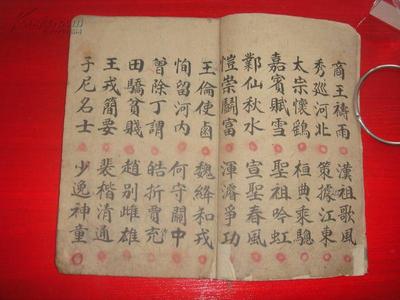 商王禱雨 漢祖歌風
秀巡河北 策據江東
太宗懷鷂 桓典乘驄
嘉賓賦雪 聖祖吟虹
鄴仙秋水 宣聖春風
愷崇鬭富 渾濬爭功
王倫使鹵 魏絳和戎
恂留河內 何守關中
曾除丁謂 皓折賈充
田驕貧賤 趙別雌雄
王戎簡要 裴楷清通
子尼名士 少逸神童